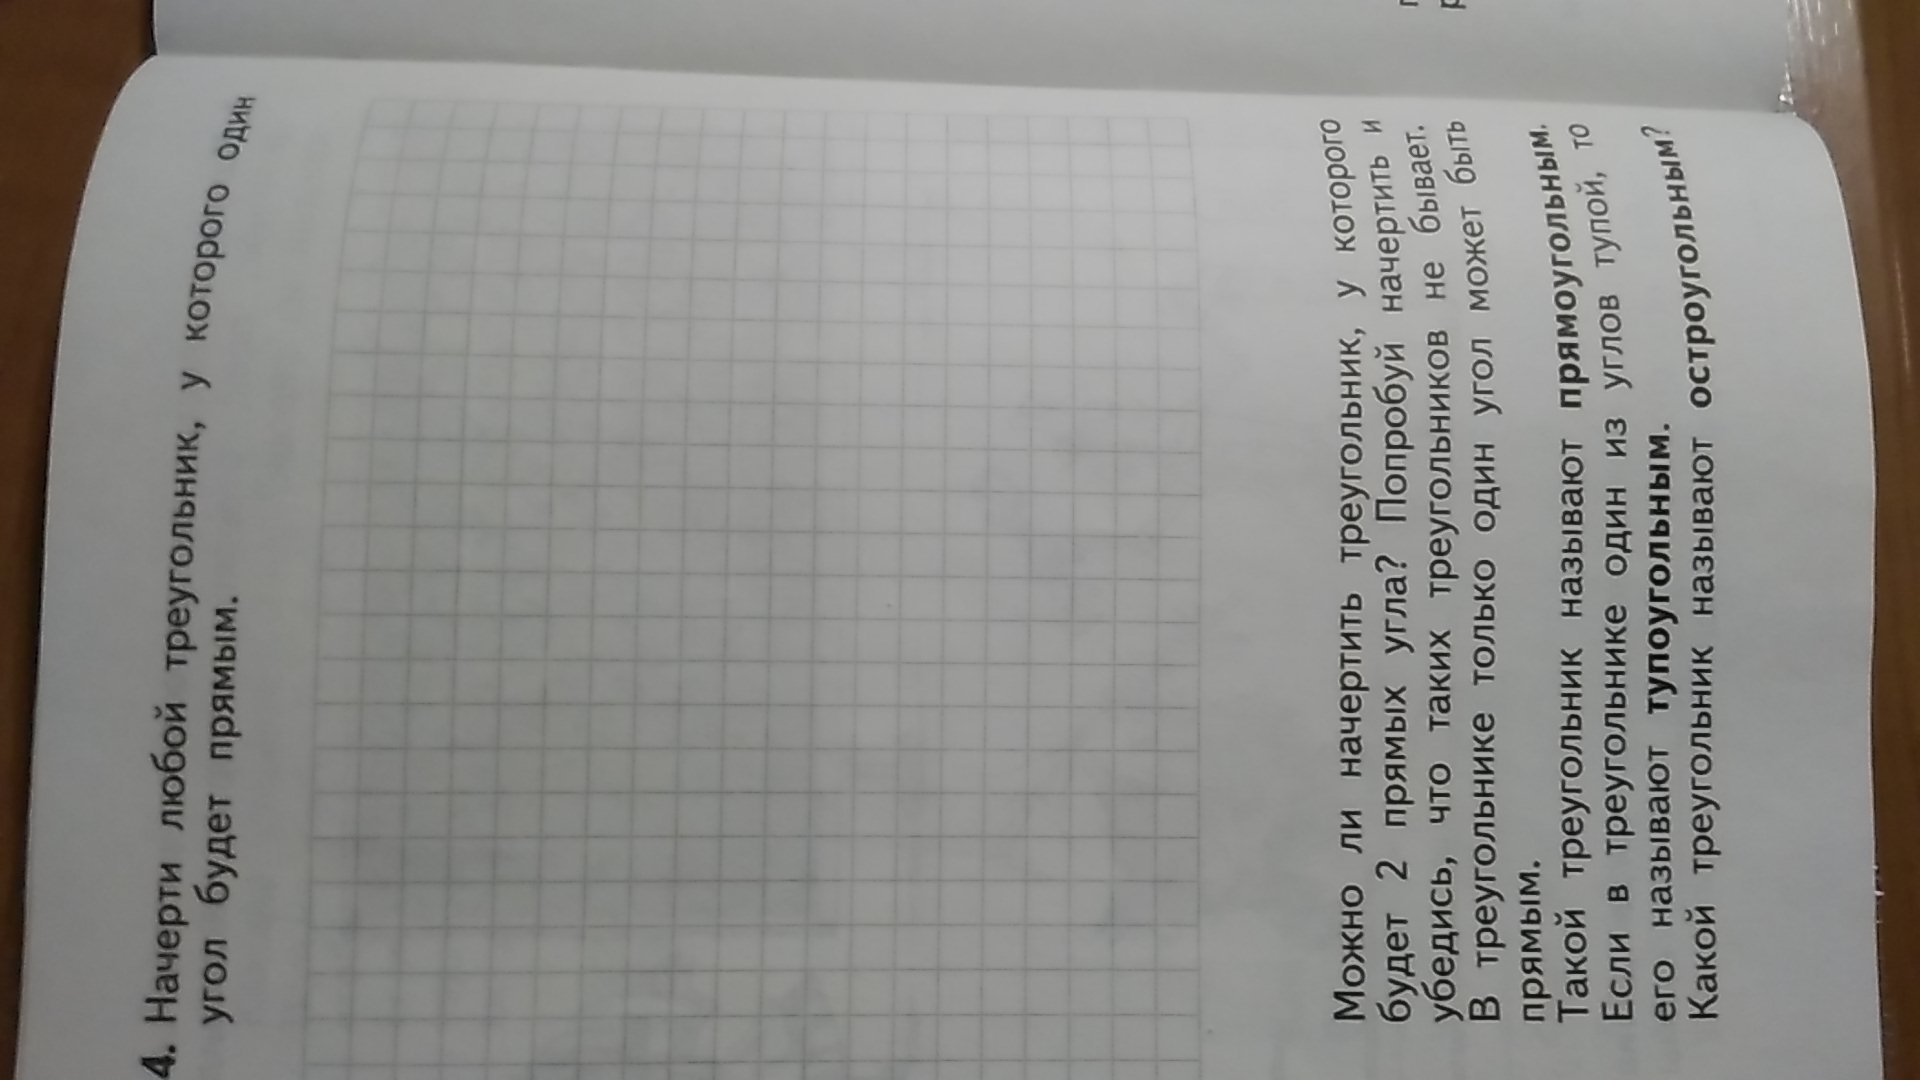 4. Начерти любой треугольник, у которого один
угол будет прямым.
Можно ли начертить треугольник, у которого
будет 2 прямых угла? Попробуй начертить и
убедись, что таких треугольников не бывает.
В треугольнике только один угол может быть
прямым.
Такой треугольник называют прямоугольным.
Если в треугольнике один из углов тупой, то
его называют тупоугольным.
Какой треугольник называют остроугольным?